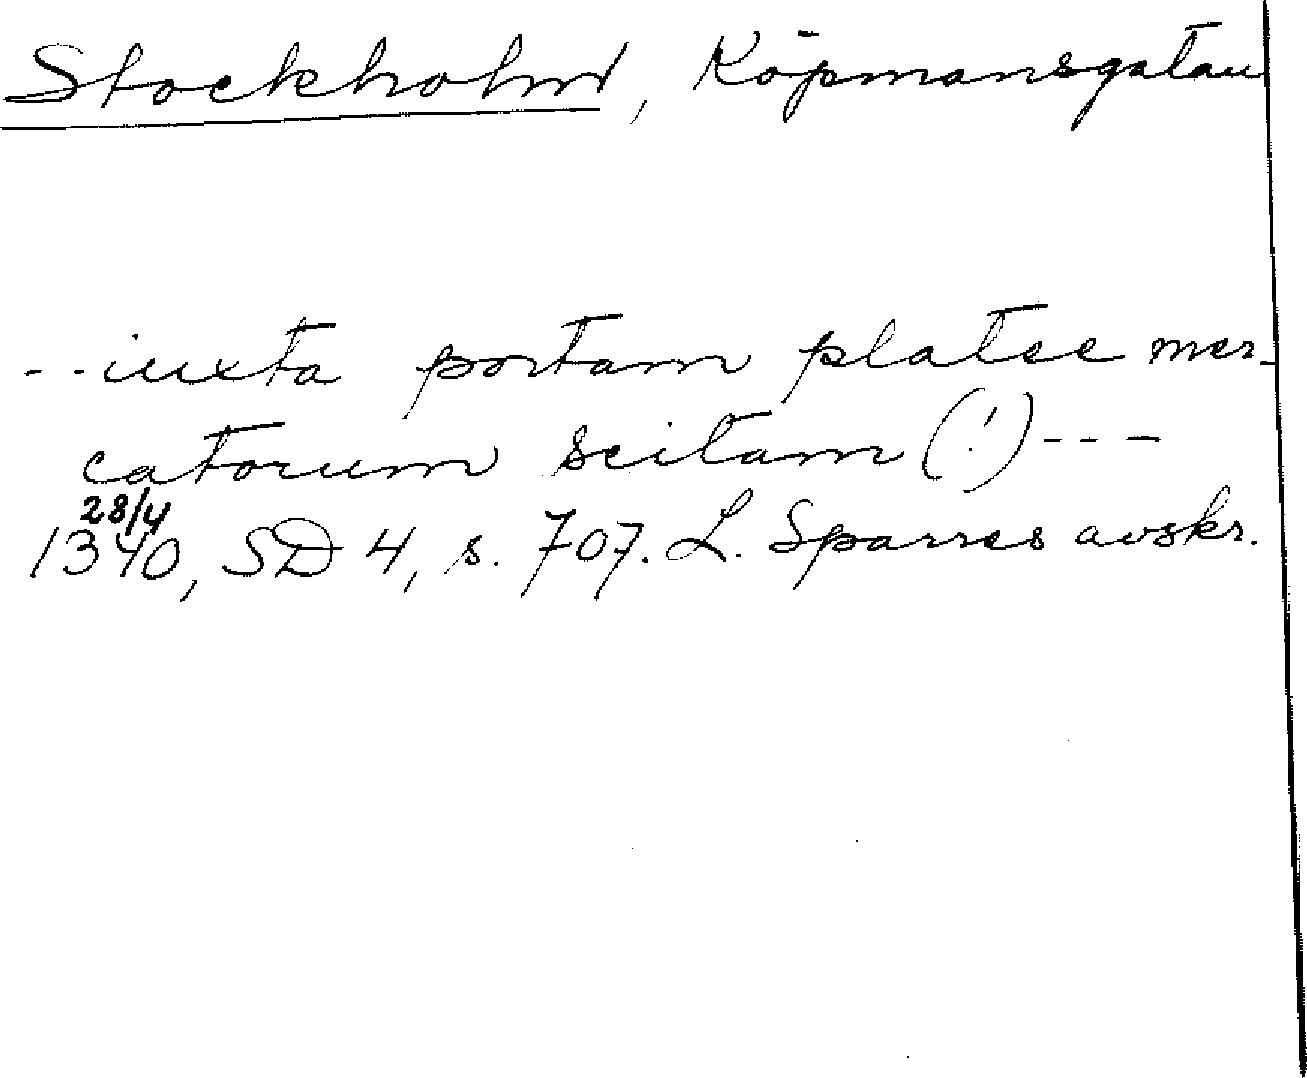 Stockholm, Köpmansgatan
--iuxta portam platee mer-
catorum scitam (!) ---
28/4
1340, SD 4, s. 707. L. Sparres avskr.